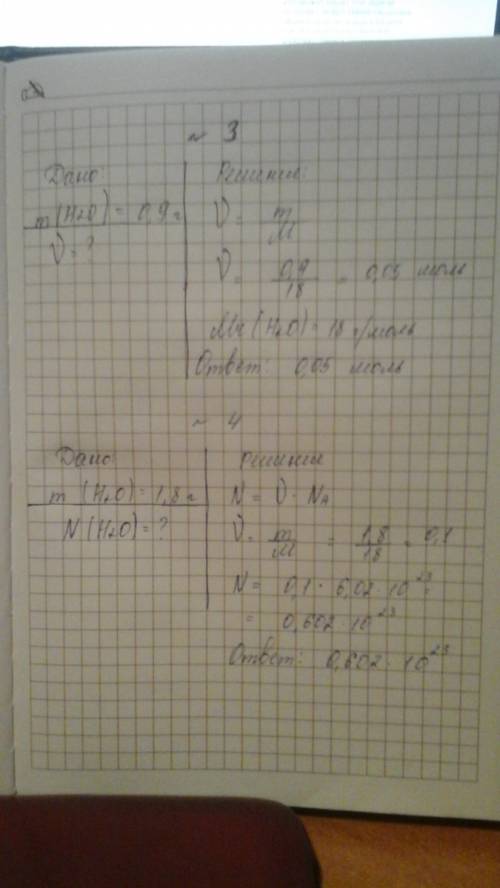 ~ 3
Дано:
m(H₂O) = 0,9 г
ν = ?
Решение:
ν = m/M
ν = 0,9/18 = 0,05 моль
Mr(H₂O) = 18 г/моль
Ответ: 0,05 моль
~ 4
Дано:
m(H₂O) = 1,8 г
N(H₂O) = ?
Решение
N = ν · Nₐ
ν = m/M = 1,8/18 = 0,1
N = 0,1 · 6,02 · 10²³ =
= 0,602 · 10²³
Ответ: 0,602 · 10²³